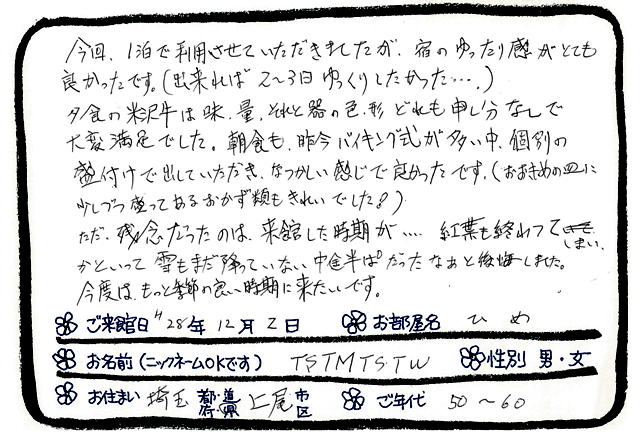 今回、1泊で利用させていただきましたが、宿のゆったり感がとても
良かったです。(出来れば 2〜3日ゆっくりしたかった‥‥。)
夕食の米沢牛は味、量、それと器の色、形 どれも申し分なしで
大変満足でした。朝食も、昨今バイキング式が多い中、個別の
盛付けで出していただき、なつかしい感じで良かったです。(おおきめの皿に
少しづつ盛ってあるおかず類もきれいでした!)
ただ、残念だったのは、来館した時期が‥‥ 紅葉も終わってしまい、
かといって雪もまだ降っていない中途半ぱだったなぁと後悔しました。
今度は、もっと季節の良い時期に来たいです。
ご来館日 "28年 12月 2日 お部屋名 ひめ
お名前(ニックネームOKです) TSTMTSTW 性別 男・女
お住まい 埼玉 都道府県 上尾 市区 ご年代 50〜60